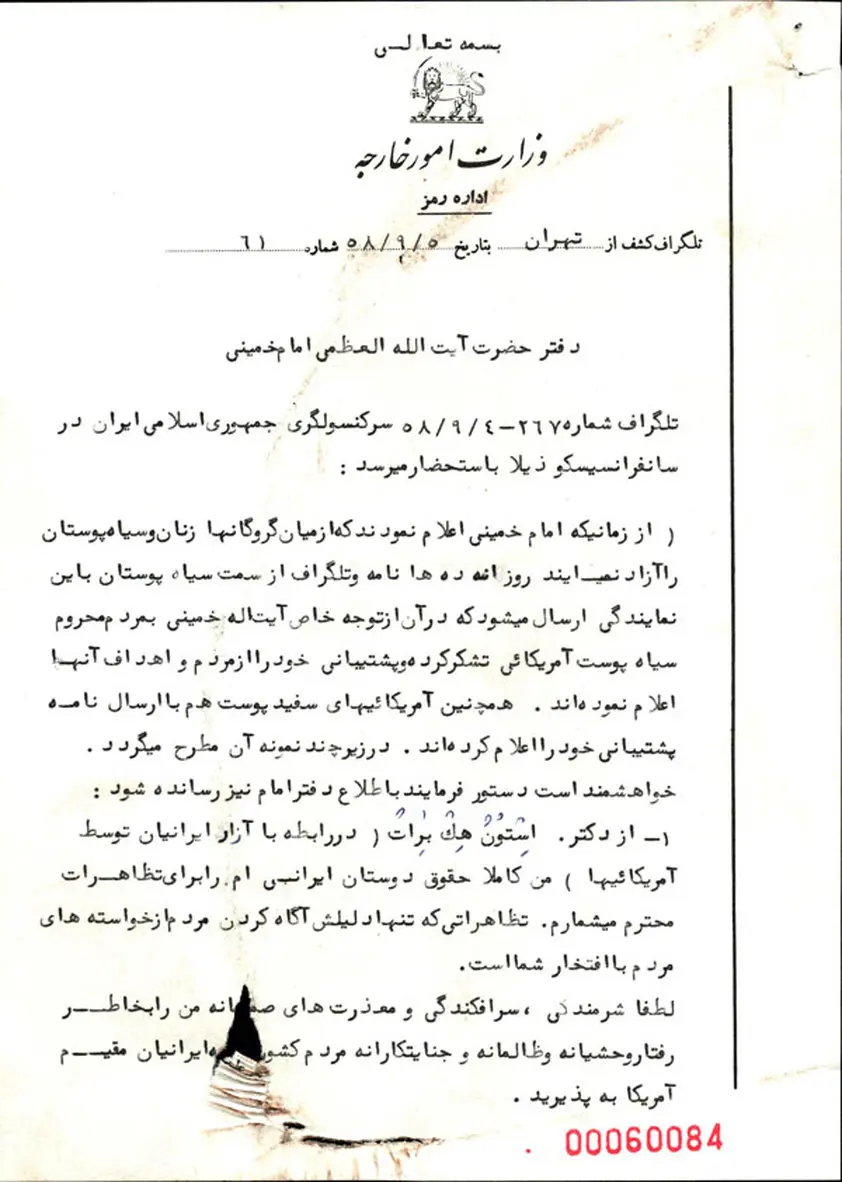 بسمه تعالی
وزارت امور خارجه
اداره رمز
تلگراف کشف از تهران بتاریخ ۵۸/۹/۵ شماره ۶۱
دفتر حضرت آیت الله العظمی امام خمینی
تلگراف شماره ۲۶۷-۵۸/۹/۴ سرکنسولگری جمهوری اسلامی ایران در
سانفرانسیسکو ذیلا باستحضار میرسد :
( از زمانیکه امام خمینی اعلام نمودند که از میان گروگانها زنان و سیاه پوستان
را آزاد نمـایند روزانه ده ها نامه و تلگراف از سمت سیاه پوستان باین
نمایندگی ارسال میشود که در آن از توجه خاص آیت اله خمینی بمردم محروم
سیاه پوست آمریکائی تشکر کرده و پشتیبانی خود را از مردم و اهداف آنهـا
اعلام نموده اند . همچنین آمریکائیهای سفید پوست هم با ارسال نامـه
پشتیبانی خود را اعلام کرده اند . در زیر چند نمونه آن مطرح میگردد .
خواهشمند است دستور فرمایند باطلاع دفتر امام نیز رسانده شود :
۱- از دکتر . اِستُونُ هِکْ بِراتُ ( در رابطه با آزار ایرانیان توسط
آمریکائیها ) من کاملا حقوق دوستان ایرانـی ام را برای تظاهـرات
محترم میشمارم. تظاهراتی که تنها دلیلش آگاه کردن مردم از خواسته های
مردم با افتخار شما است.
لطفا شرمندگی ، سرافکندگی و معذرت های من را بخاطـــر
رفتار وحشیانه و ظالمانه و جنایتکارانه مردم ایرانیان مقیـــم
آمریکا به پذیرید .
00060084